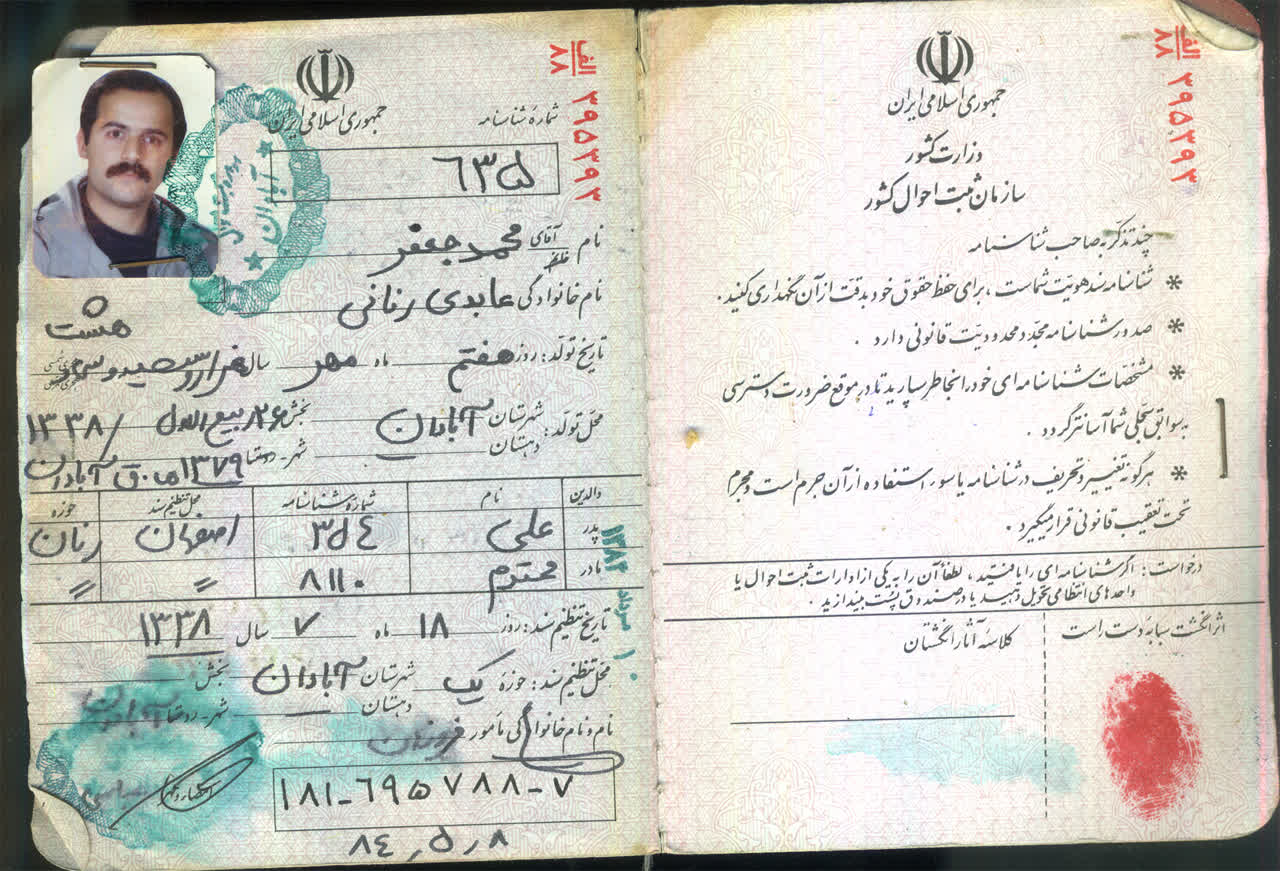 جمهوری اسلامی ایران
وزارت کشور
سازمان ثبت احوال کشور
چند تذکّر به صاحب شناسنامه
* شناسنامه سند هویّت شماست ، برای حفظ حقوق خود بدقّت از آن نگهداری کنید .
* صدور شناسنامه مجدّد محدودیّت قانونی دارد .
* مشخّصات شناسنامه ای خود را بخاطر بسپارید تا در موقع ضرورت دسترسی
به سوابق سجّلی شما آسانتر گردد .
* هرگونه تغییر و تحریف در شناسنامه یا سوء استفاده از آن جرم است و مجرم
تحت تعقیب قانونی قرار میگیرد .
درخواست : اگر شناسنامه ای را یافتید ، لطفاً آن را به یکی از ادارات ثبت احوال یا
واحدهای انتظامی تحویل دهید یا در صندوق پست بیندازید .
اثر انگشت سبابه دست راست
کلاسه آثار انگشتان
الف
۸۸
۳۹۵۳۹۳
جمهوری اسلامی ایران
شمارۀ شناسنامه
۶۳۵
نام آقای خانم محمد جعفر
نام خانوادگی عابدی رنانی
تاریخ تولّد : روز هفتم ماه مهر سال هزار و سیصد و سی و هشت
محلّ تولّد : شهرستان آبادان بخش
۲۶ ربیع الاول ۱۳۳۸/
دهستان شهر - روستا آبادان
۱۳۷۹ ه.ق
والدین نام شماره شناسنامه محل تنظیم سند حوزه
پدر علی ۳۵۴ اصفهان رنان
مادر محترم ۸۱۱۰ 〃 〃
تاریخ تنظیم سند : روز ۱۸ ماه ۷ سال ۱۳۳۸
محلّ تنظیم سند : حوزۀ یک شهرستان آبادان بخش
دهستان شهر - روستا
نام و نام خانوادگی مأمور فروزان
۱۸۱-۶۹۵۷۸۸-۷
۸۴٫۵٫۸
۱۰ مرداد ۱۳۸۴
آبادان
الف
۸۸
۳۹۵۳۹۳